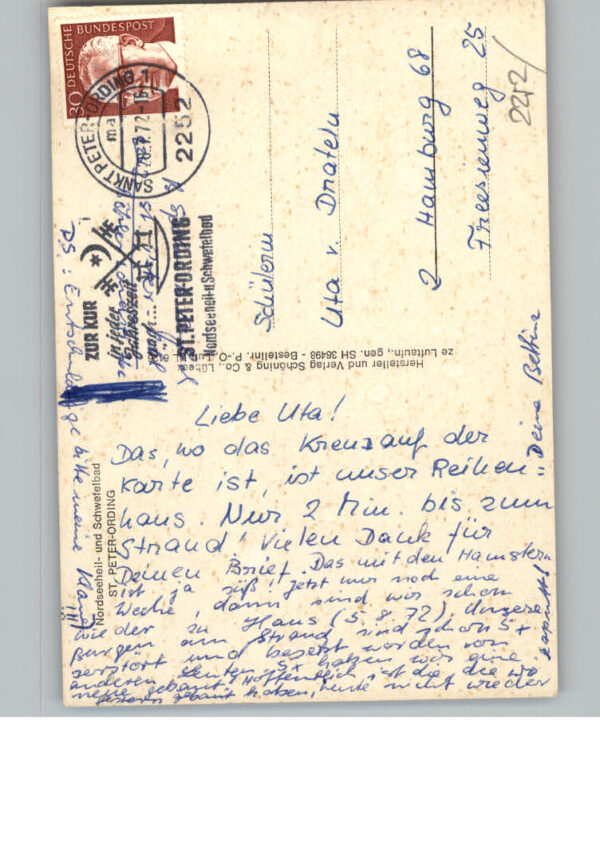 DEUTSCHE BUNDESPOST
30
SANKT PETER-ORDING 1
2252
ZUR KUR
in jeder
Jahreszeit
nach...
ST. PETER-ORDING
Nordseeheil-u.Schwefelbad
Schülerin
Uta v. Dnateln
2 Hamburg 68
Freesienweg 25
22D2/
Hersteller und Verlag Schöning & Co., Lübeck
ze Luftaufn., gen. SH 36498 - Bestellnr. P.-O.
Nordseeheil- und Schwefelbad
ST. PETER-ORDING
Liebe Uta!
Das, wo das Kreuz auf der
Karte ist, ist unser Reihen=
haus. Nur 2 Min. bis zum
Strand! Vielen Dank für
Deinen Brief. Das mit den Hamstern
ist ja süß! Jetzt nur noch eine
Woche, dann sind wir schon
wieder zu Haus (5.8.72). Unsere
Burgen am Strand sind schon 5x
zerstört und besetzt worden von
anderen Leuten. 5x haben wir eine
neue gebaut. Hoffentlich ist die, die wir
gestern gebaut haben, heute nicht wieder
kaputt!
Deine Bettina
P.S.: Entschuldige bitte meine